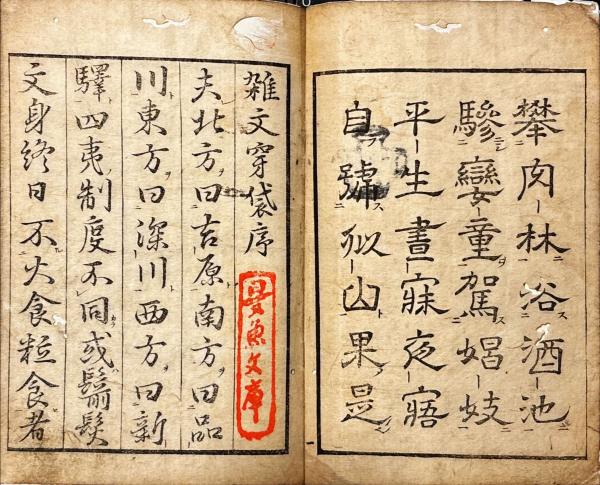 攀肉林浴酒池
驂孌童駕娼妓
平生晝寐夜寤
自號似山果是
雑文穿袋序
夫北方曰吉原南方曰品
川東方曰深川西方曰新
驛四夷制度不同或鬋髮
文身終日不火食粒食者
曼魚文庫